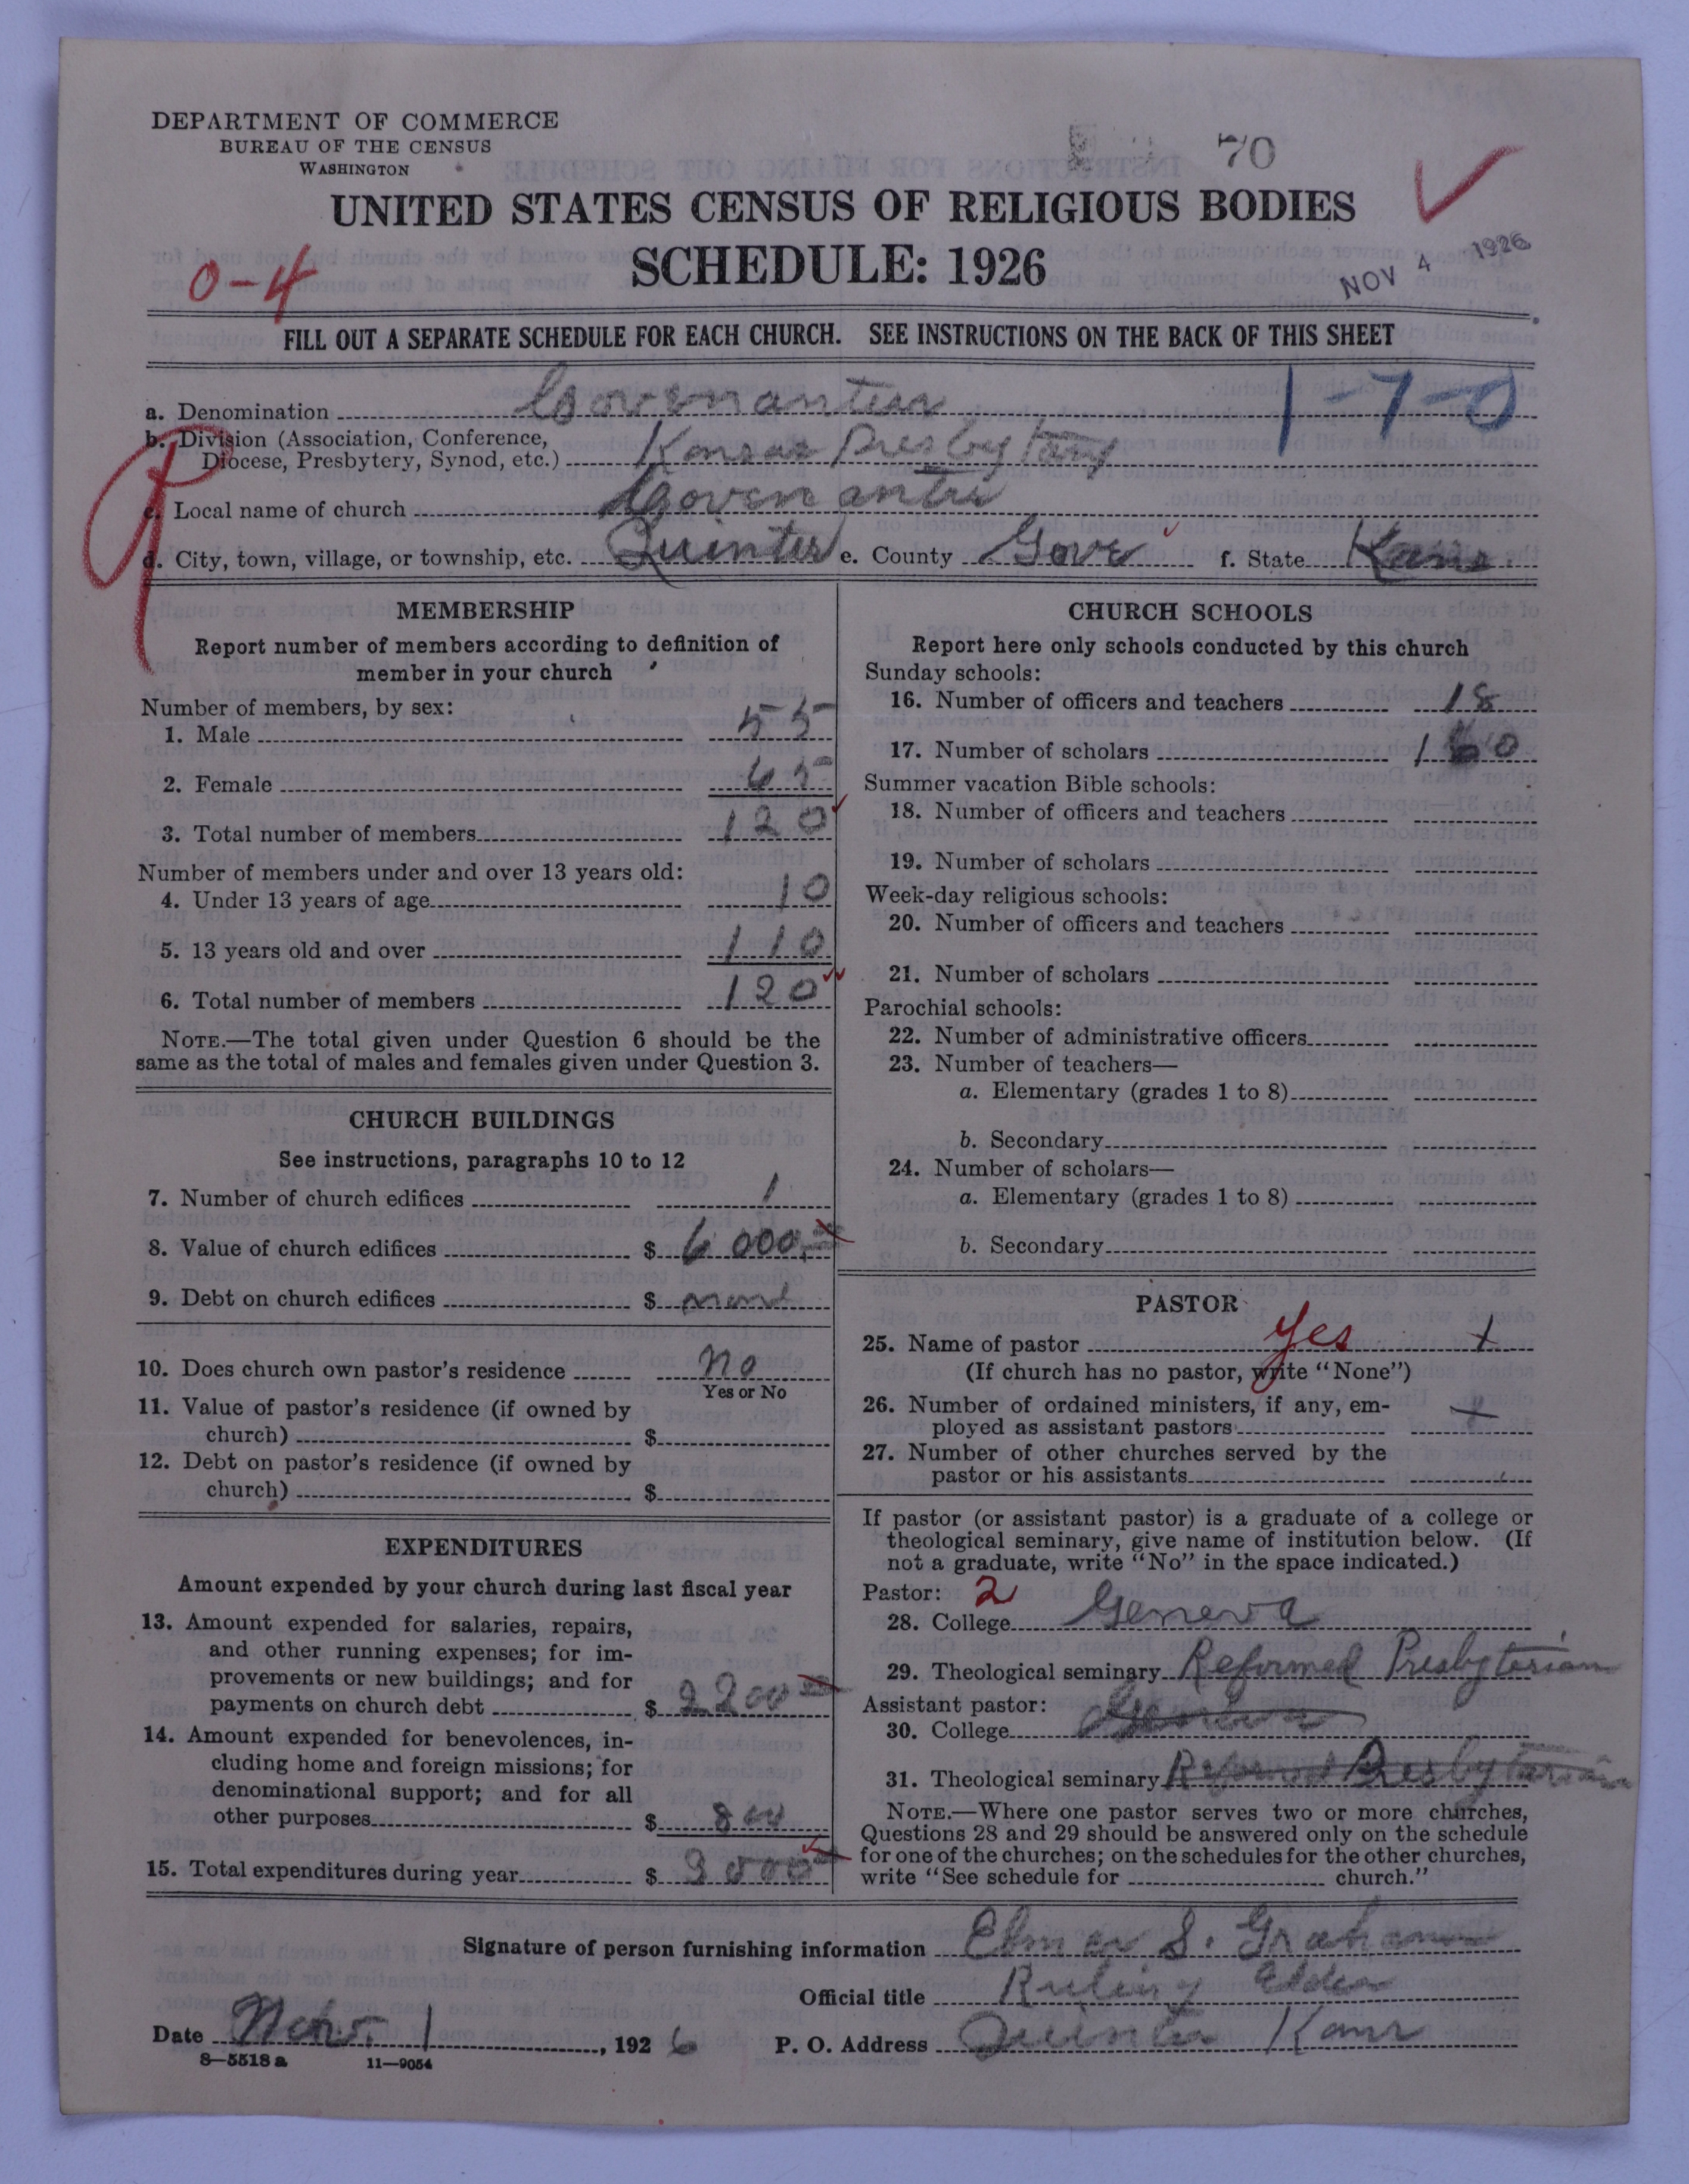 DEPARTMENT OF COMMERCE
BUREAU OF THE CENSUS
WASHINGTON
70
UNITED STATES CENSUS OF RELIGIOUS BODIES
SCHEDULE: 1926
0-4
NOV 4 1926
FILL OUT A SEPARATE SCHEDULE FOR EACH CHURCH. SEE INSTRUCTIONS ON THE BACK OF THIS SHEET
1-7-0
a. Denomination Covernanter
b. Division (Association, Conference,
Diocese, Presbytery, Synod, etc.) Kansas Presbytary
c. Local name of church
d. City, town, village, or township, etc. Quinter e. County Gove f. State Kans.
MEMBERSHIP
Report number of members according to definition of
member in your church
Number of members, by sex:
1. Male 55
2. Female 65
3. Total number of members 120
Number of members under and over 13 years old:
4. Under 13 years of age 10
5. 13 years old and over 110
6. Total number of members 120
NOTE.—The total given under Question 6 should be the
same as the total of males and females given under Question 3.
CHURCH BUILDINGS
See instructions, paragraphs 10 to 12
7. Number of church edifices 1
8. Value of church edifices $ 6000
9. Debt on church edifices $
10. Does church own pastor's residence no
Yes or No
11. Value of pastor's residence (if owned by
church) $
12. Debt on pastor's residence (if owned by
church) $
EXPENDITURES
Amount expended by your church during last fiscal year
13. Amount expended for salaries, repairs,
and other running expenses; for im-
provements or new buildings; and for
payments on church debt $ 2200
14. Amount expended for benevolences, in-
cluding home and foreign missions; for
denominational support; and for all
other purposes $ 800
15. Total expenditures during year $ 3000
CHURCH SCHOOLS
Report here only schools conducted by this church
Sunday schools:
16. Number of officers and teachers 18
17. Number of scholars 160
Summer vacation Bible schools:
18. Number of officers and teachers
19. Number of scholars
Week-day religious schools:
20. Number of officers and teachers
21. Number of scholars
Parochial schools:
22. Number of administrative officers
23. Number of teachers—
a. Elementary (grades 1 to 8)
b. Secondary
24. Number of scholars—
a. Elementary (grades 1 to 8)
b. Secondary
PASTOR
25. Name of pastor Yes +
(If church has no pastor, write "None")
26. Number of ordained ministers, if any, em-
ployed as assistant pastors
27. Number of other churches served by the
pastor or his assistants
If pastor (or assistant pastor) is a graduate of a college or
theological seminary, give name of institution below. (If
not a graduate, write "No" in the space indicated.)
Pastor: 2
28. College Geneva
29. Theological seminary Reformed Presbytorian
Assistant pastor:
30. College Geneva
31. Theological seminary Reformed Presbytarian
NOTE.—Where one pastor serves two or more churches,
Questions 28 and 29 should be answered only on the schedule
for one of the churches; on the schedules for the other churches,
write "See schedule for church."
Signature of person furnishing information Elmer S. Graham
Official title Ruling Elder
Date Nov. 1, 1926 P. O. Address Quinter Kans
8—5518 a 11—9054